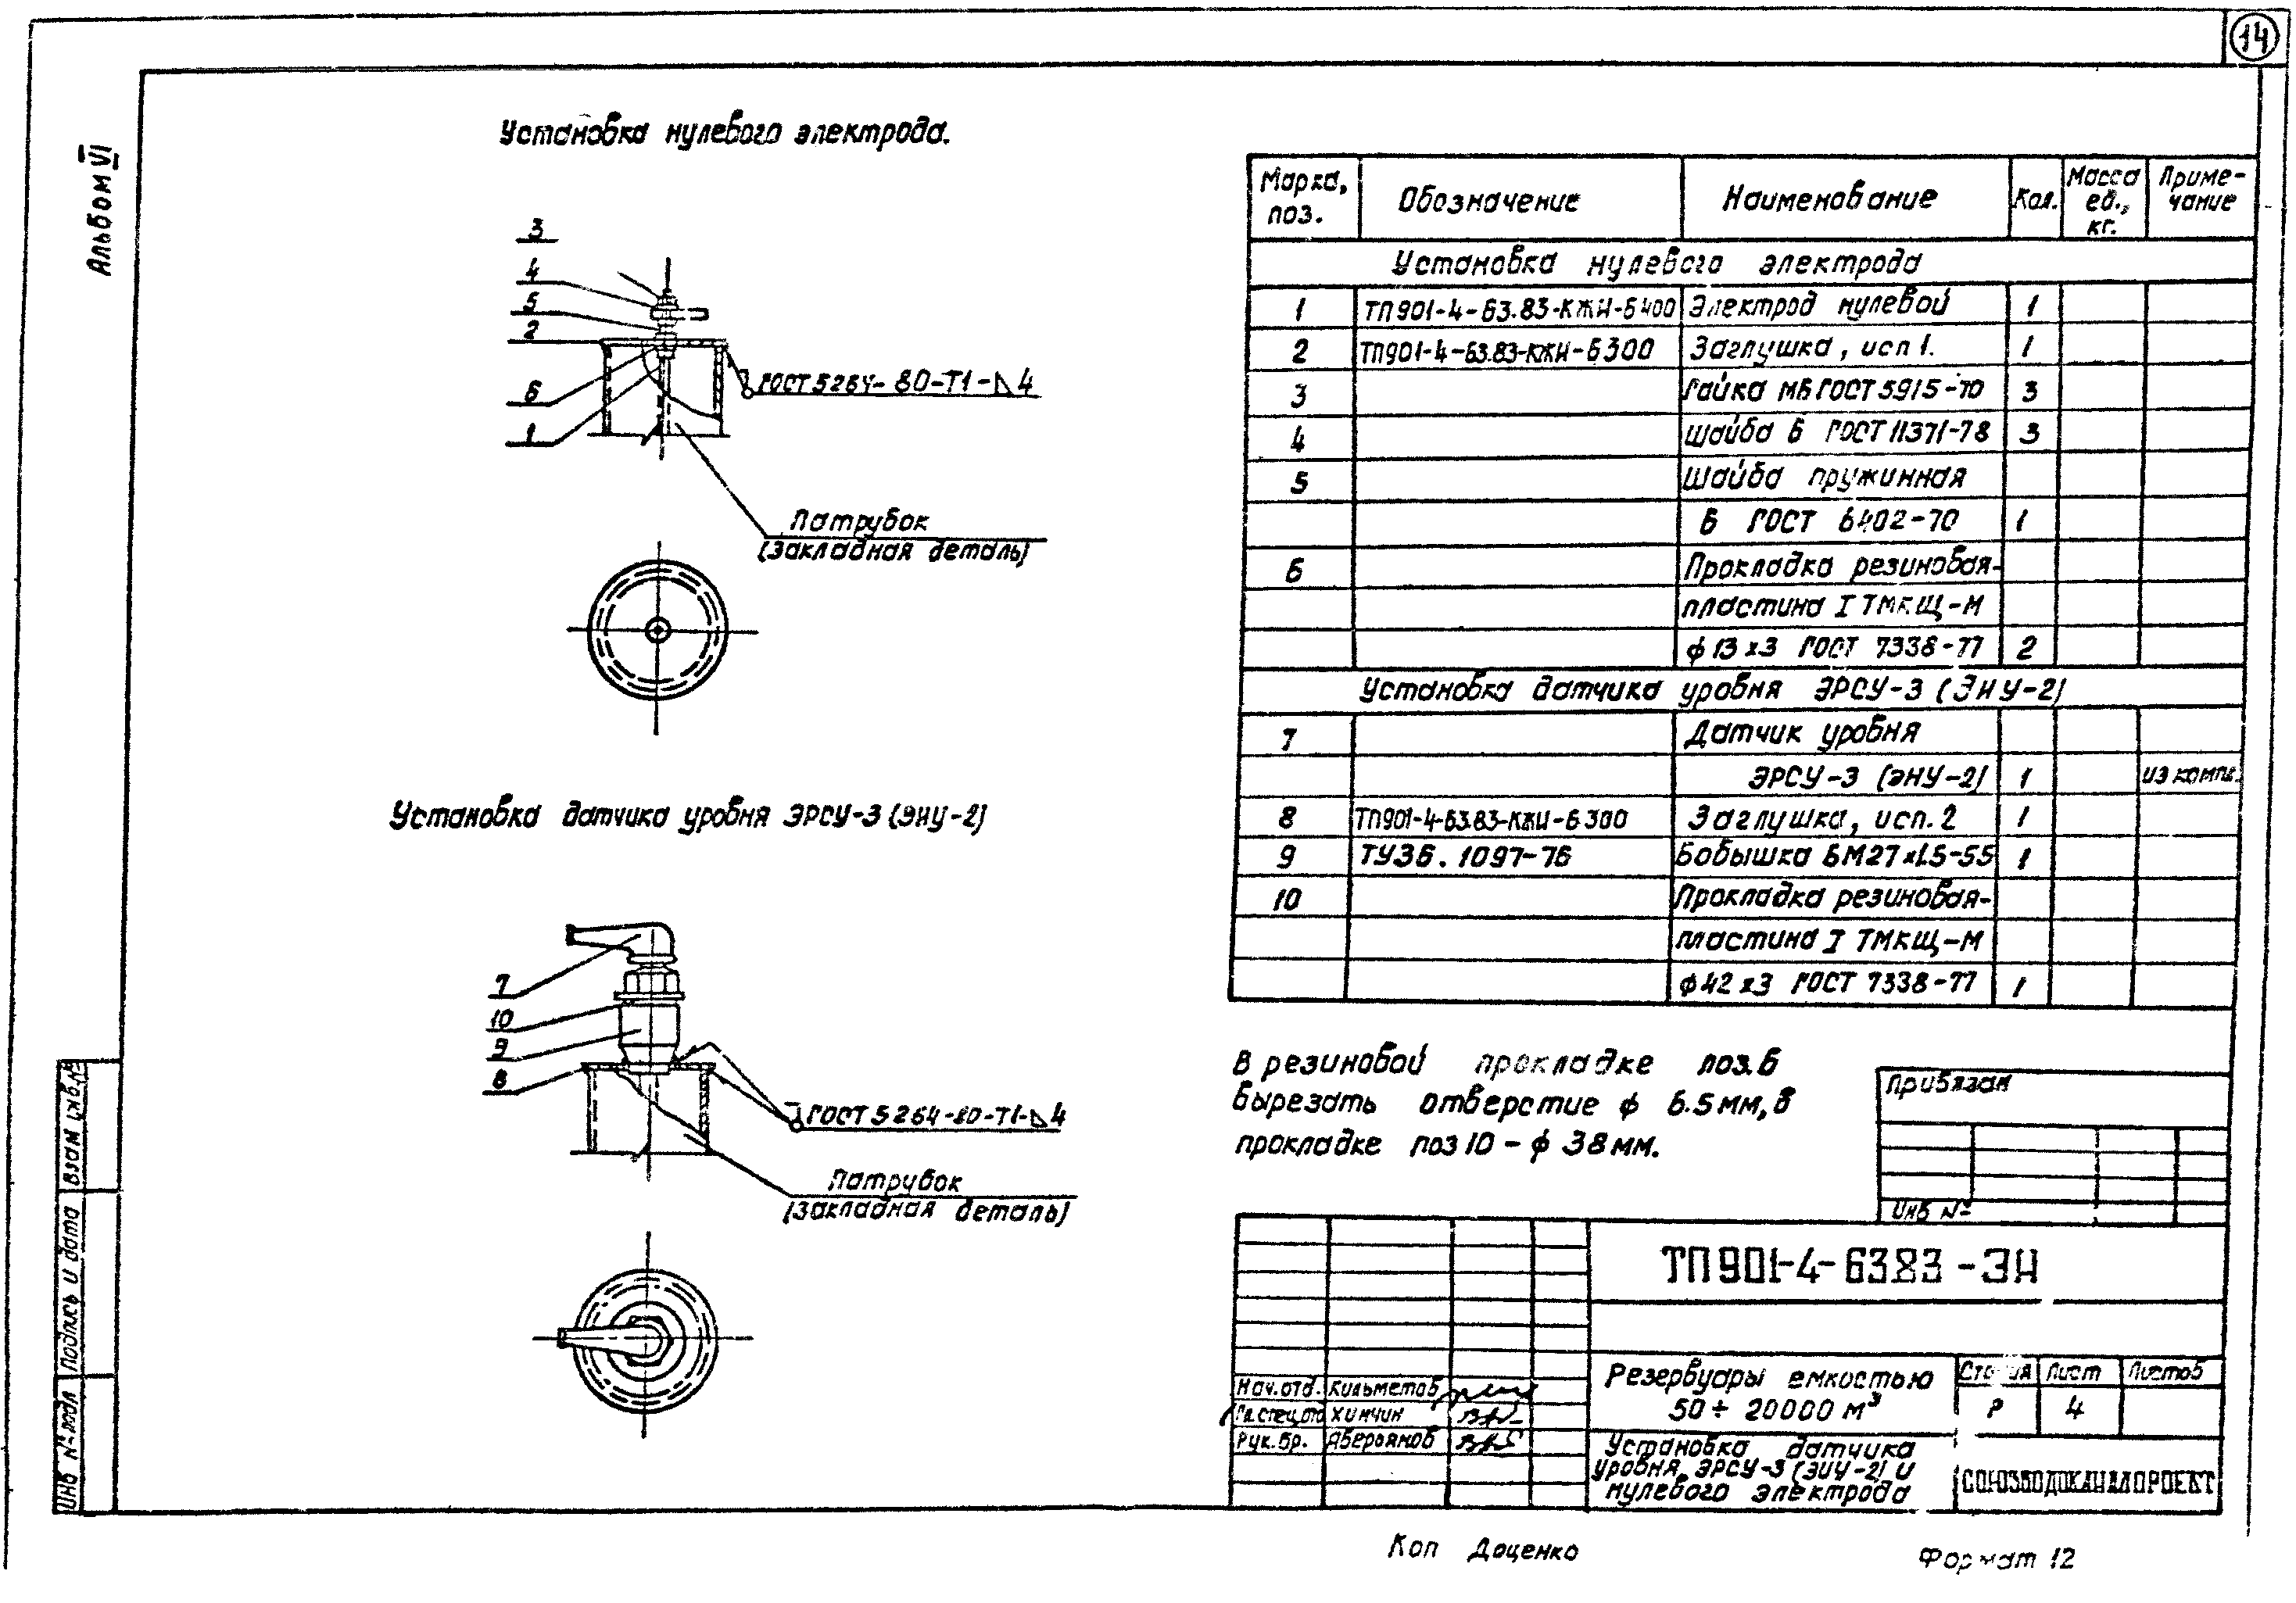 14
Альбом VI
Установка нулевого электрода.
3
4
5
2
6
1
ГОСТ 5264-80-Т1-◺4
Патрубок
(закладная деталь)
Установка датчика уровня ЭРСУ-3 (ЭИУ-2)
7
10
9
8
ГОСТ 5264-80-Т1-◺4
Патрубок
(закладная деталь)
Марка, поз. Обозначение Наименование Кол. Масса ед., кг. Примечание
Установка нулевого электрода
1 ТП901-4-63.83-КЖИ-6400 Электрод нулевой 1
2 ТП901-4-63.83-КЖИ-6300 Заглушка, исп 1. 1
3 Гайка М6 ГОСТ 5915-70 3
4 Шайба 6 ГОСТ 11371-78 3
5 Шайба пружинная
6 ГОСТ 6402-70 1
6 Прокладка резиновая-
пластина I ТМКЩ-М
ф 13х3 ГОСТ 7338-77 2
Установка датчика уровня ЭРСУ-3 (ЭИУ-2)
7 Датчик уровня
ЭРСУ-3 (ЭИУ-2) 1 из компл.
8 ТП901-4-63.83-КЖИ-6300 Заглушка, исп. 2 1
9 ТУ36.1097-76 Бобышка БМ27х1.5-55 1
10 Прокладка резиновая-
пластина I ТМКЩ-М
ф 42х3 ГОСТ 7338-77 1
В резиновой прокладке поз.6
вырезать отверстие ф 6.5 мм, в
прокладке поз 10 - ф 38 мм.
Привязан
Инв №
ТП901-4-63.83-ЭН
Нач. отд. Кильметов
Гл. спец. отд Химчин
Рук. бр. Аверьянов
Резервуары емкостью
50÷20000 м³
Стадия Лист Листов
Р 4
Установка датчика
уровня ЭРСУ-3 (ЭИУ-2) и
нулевого электрода
СОЮЗВОДОКАНАЛПРОЕКТ
Инв № подл Подпись и дата Взам инв. №
Коп Доценко
Формат 12